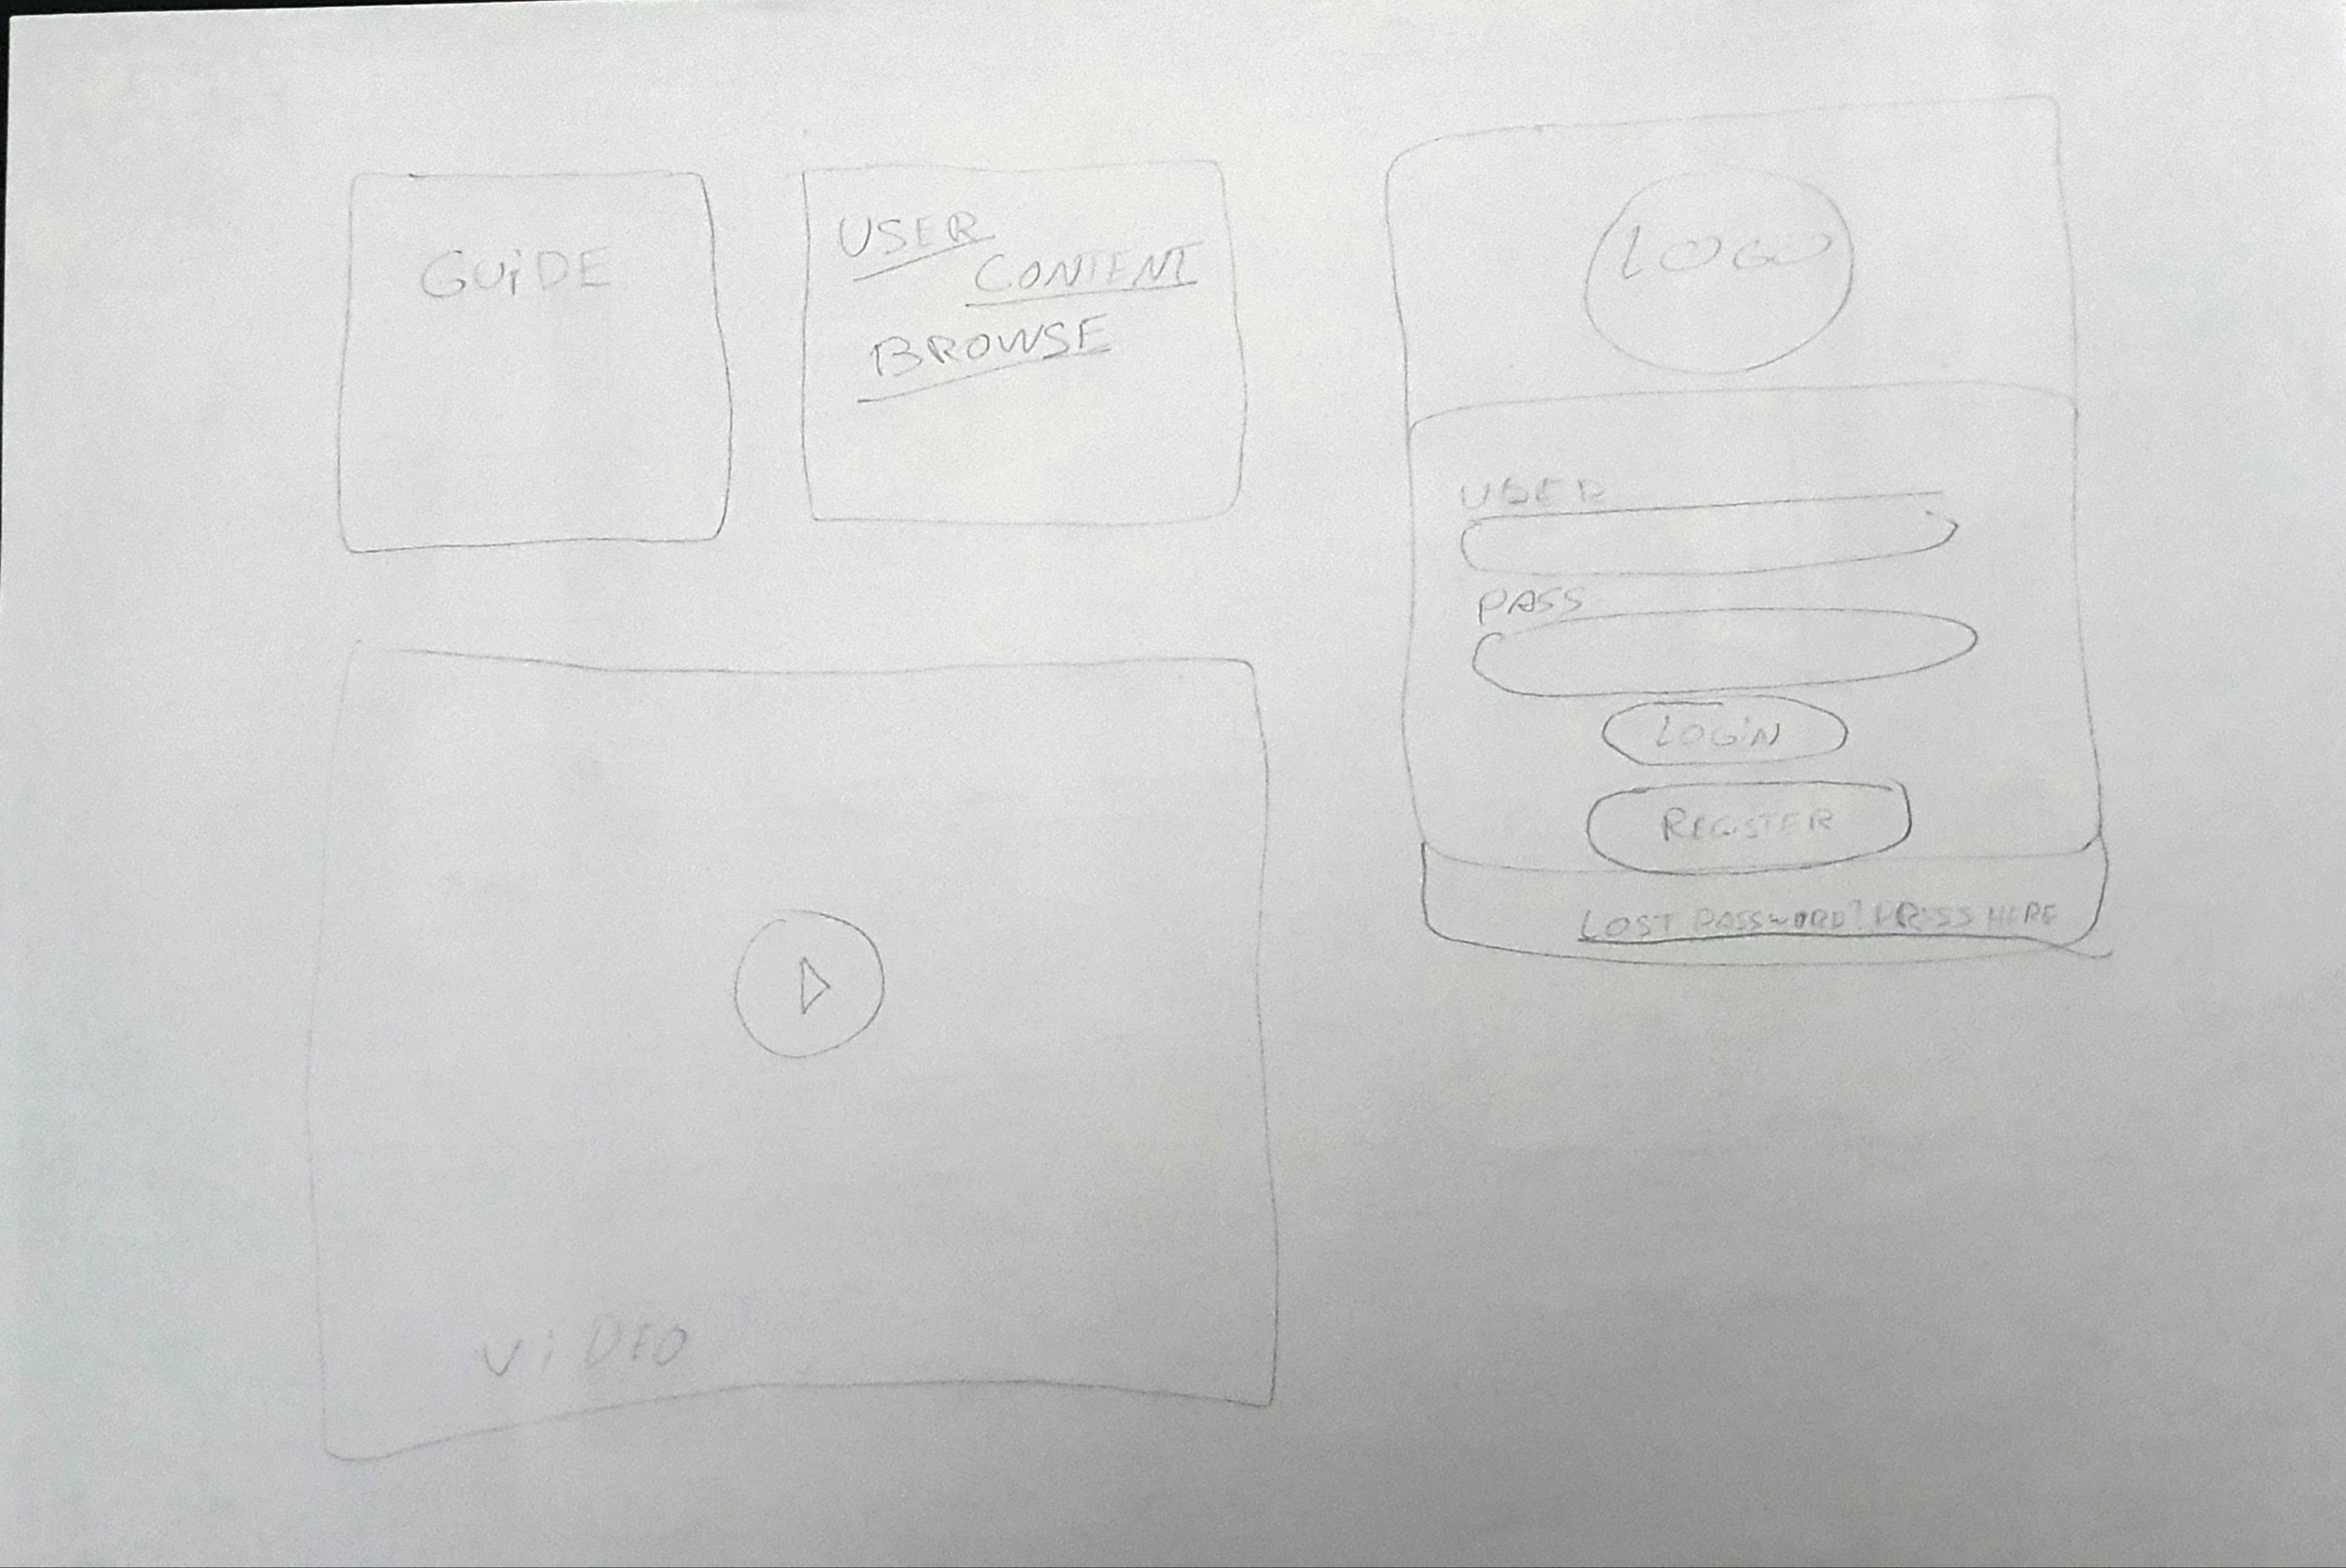 GUiDE
USER
CONTENT
BROWSE
LOGO
USER
PASS
LOGiN
REGISTER
LOST PASSWORD? PRESS HERE
ViDEO